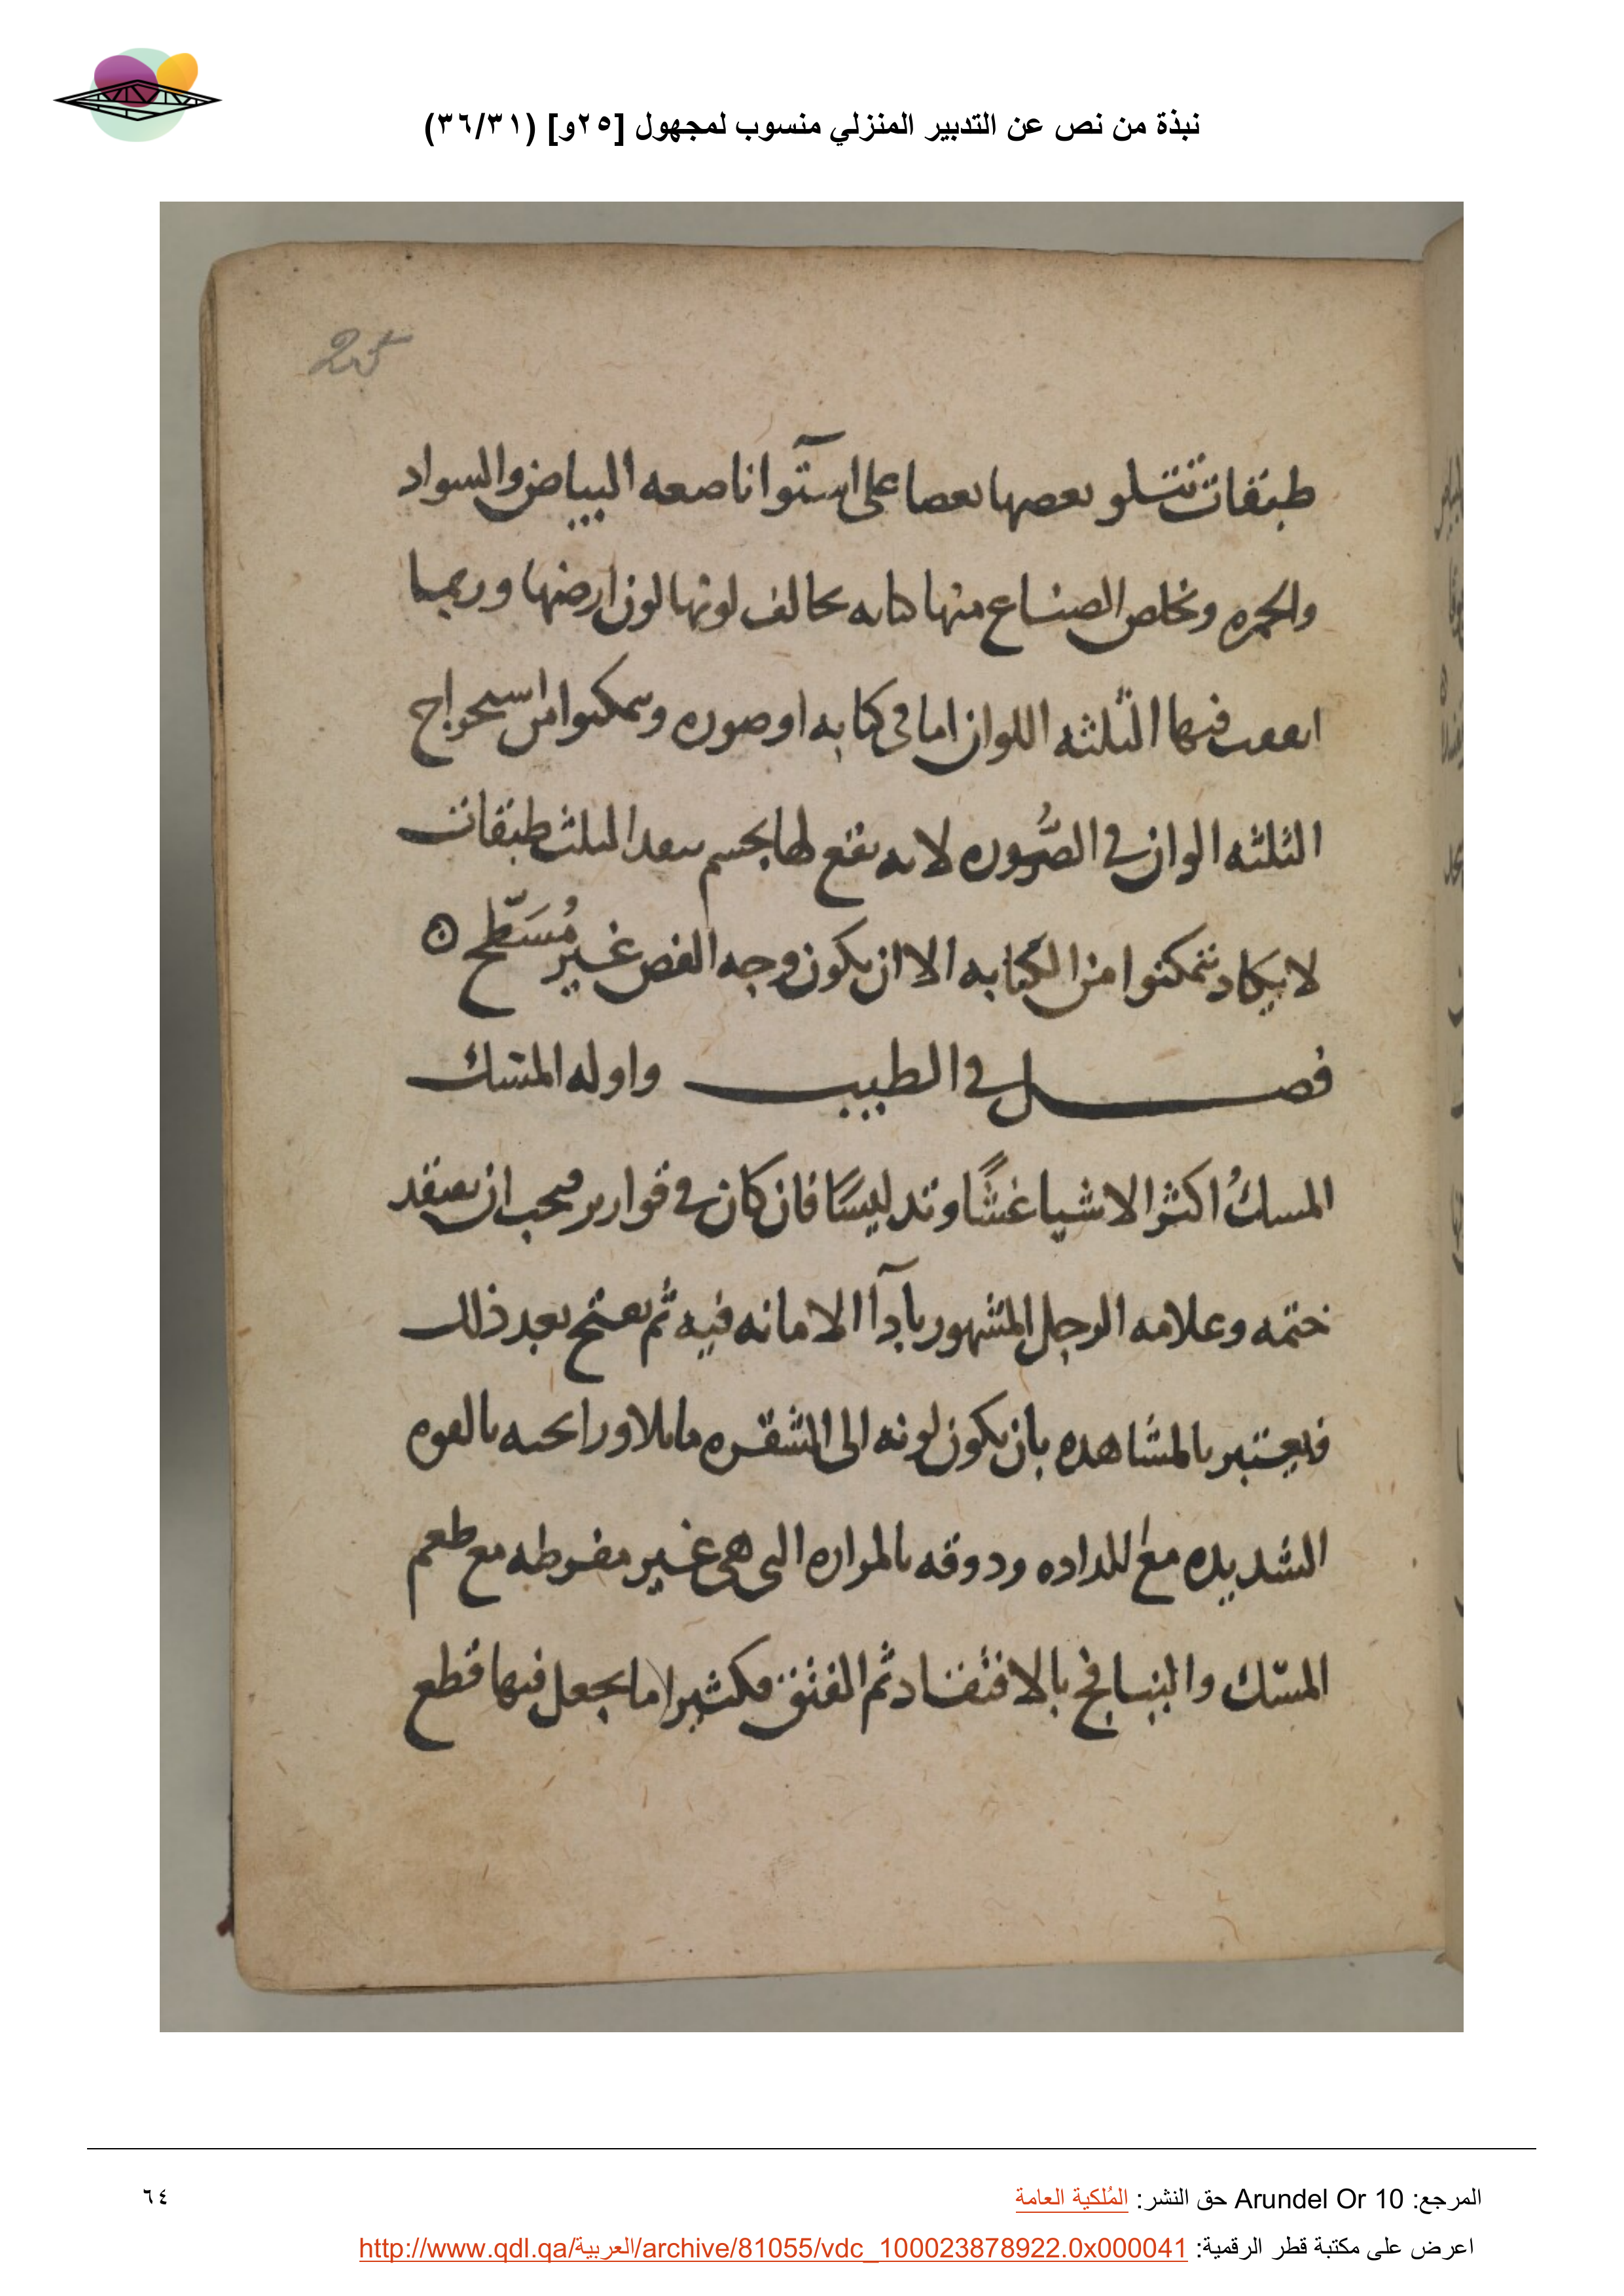 نبذة من نص عن التدبير المنزلي منسوب لمجهول [٢٥و] (٣٦/٣١)
25
طبقات تتلو بعضها بعضا على استوا ناصعه البياض والسواد
والحمره وتخلص الصناع منها كتابه تخالف لونها لون ارضها وربما
اتفقت فيها الثلثه اللوان اما في كتابه او صوره وتمكنوا من استخراج
الثلثه الوان في الصُّوره لانه يقع لها بجسم بعدا لثلث طبقات
لا يكاد يتمكنوا من الكتابه الا ان يكون وجه الفص غير مُسَطَّح
فصل في الطيب واوله المسك
المسكُ اكثر الاشيا غشًّا وتدليسًا فان كان في قوارير فيجب ان يفتقد
ختمه وعلامه الرجل المشهور بادآ الامانه فيه ثم يفتح بعد ذلك
فيعتبر بالمشاهده بان يكون لونه الى الشقره مايلا ورايحته بالقوه
الشديده مع اللداده ودوقه بالمراره التي هي غير مفرطه مع طعم
المسك والينافج بالافتقاد ثم الفتق فكثيرا ما يجعل فيها قطع
المرجع: Arundel Or 10 حق النشر: المُلكية العامة
٦٤
اعرض على مكتبة قطر الرقمية: http://www.qdl.qa/العربية/archive/81055/vdc_100023878922.0x000041